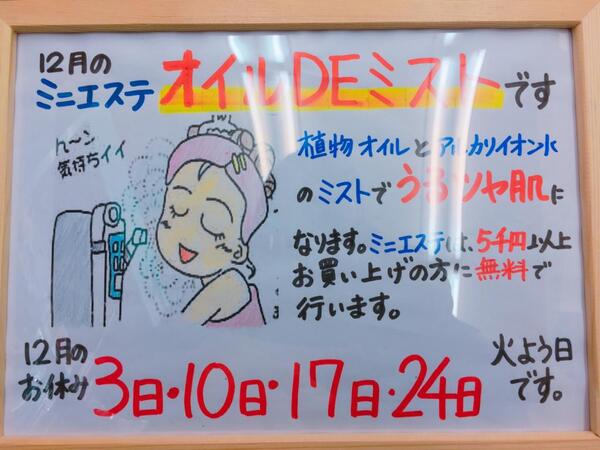 12月の
ミニエステ オイルDEミストです
ん〜ン
気持ちイイ
植物オイルとアルカリイオン水
のミストでうるツヤ肌に
なります。ミニエステは、5千円以上
お買い上げの方に無料で
行います。
12月の
お休み
3日・10日・17日・24日
火よう日
です。